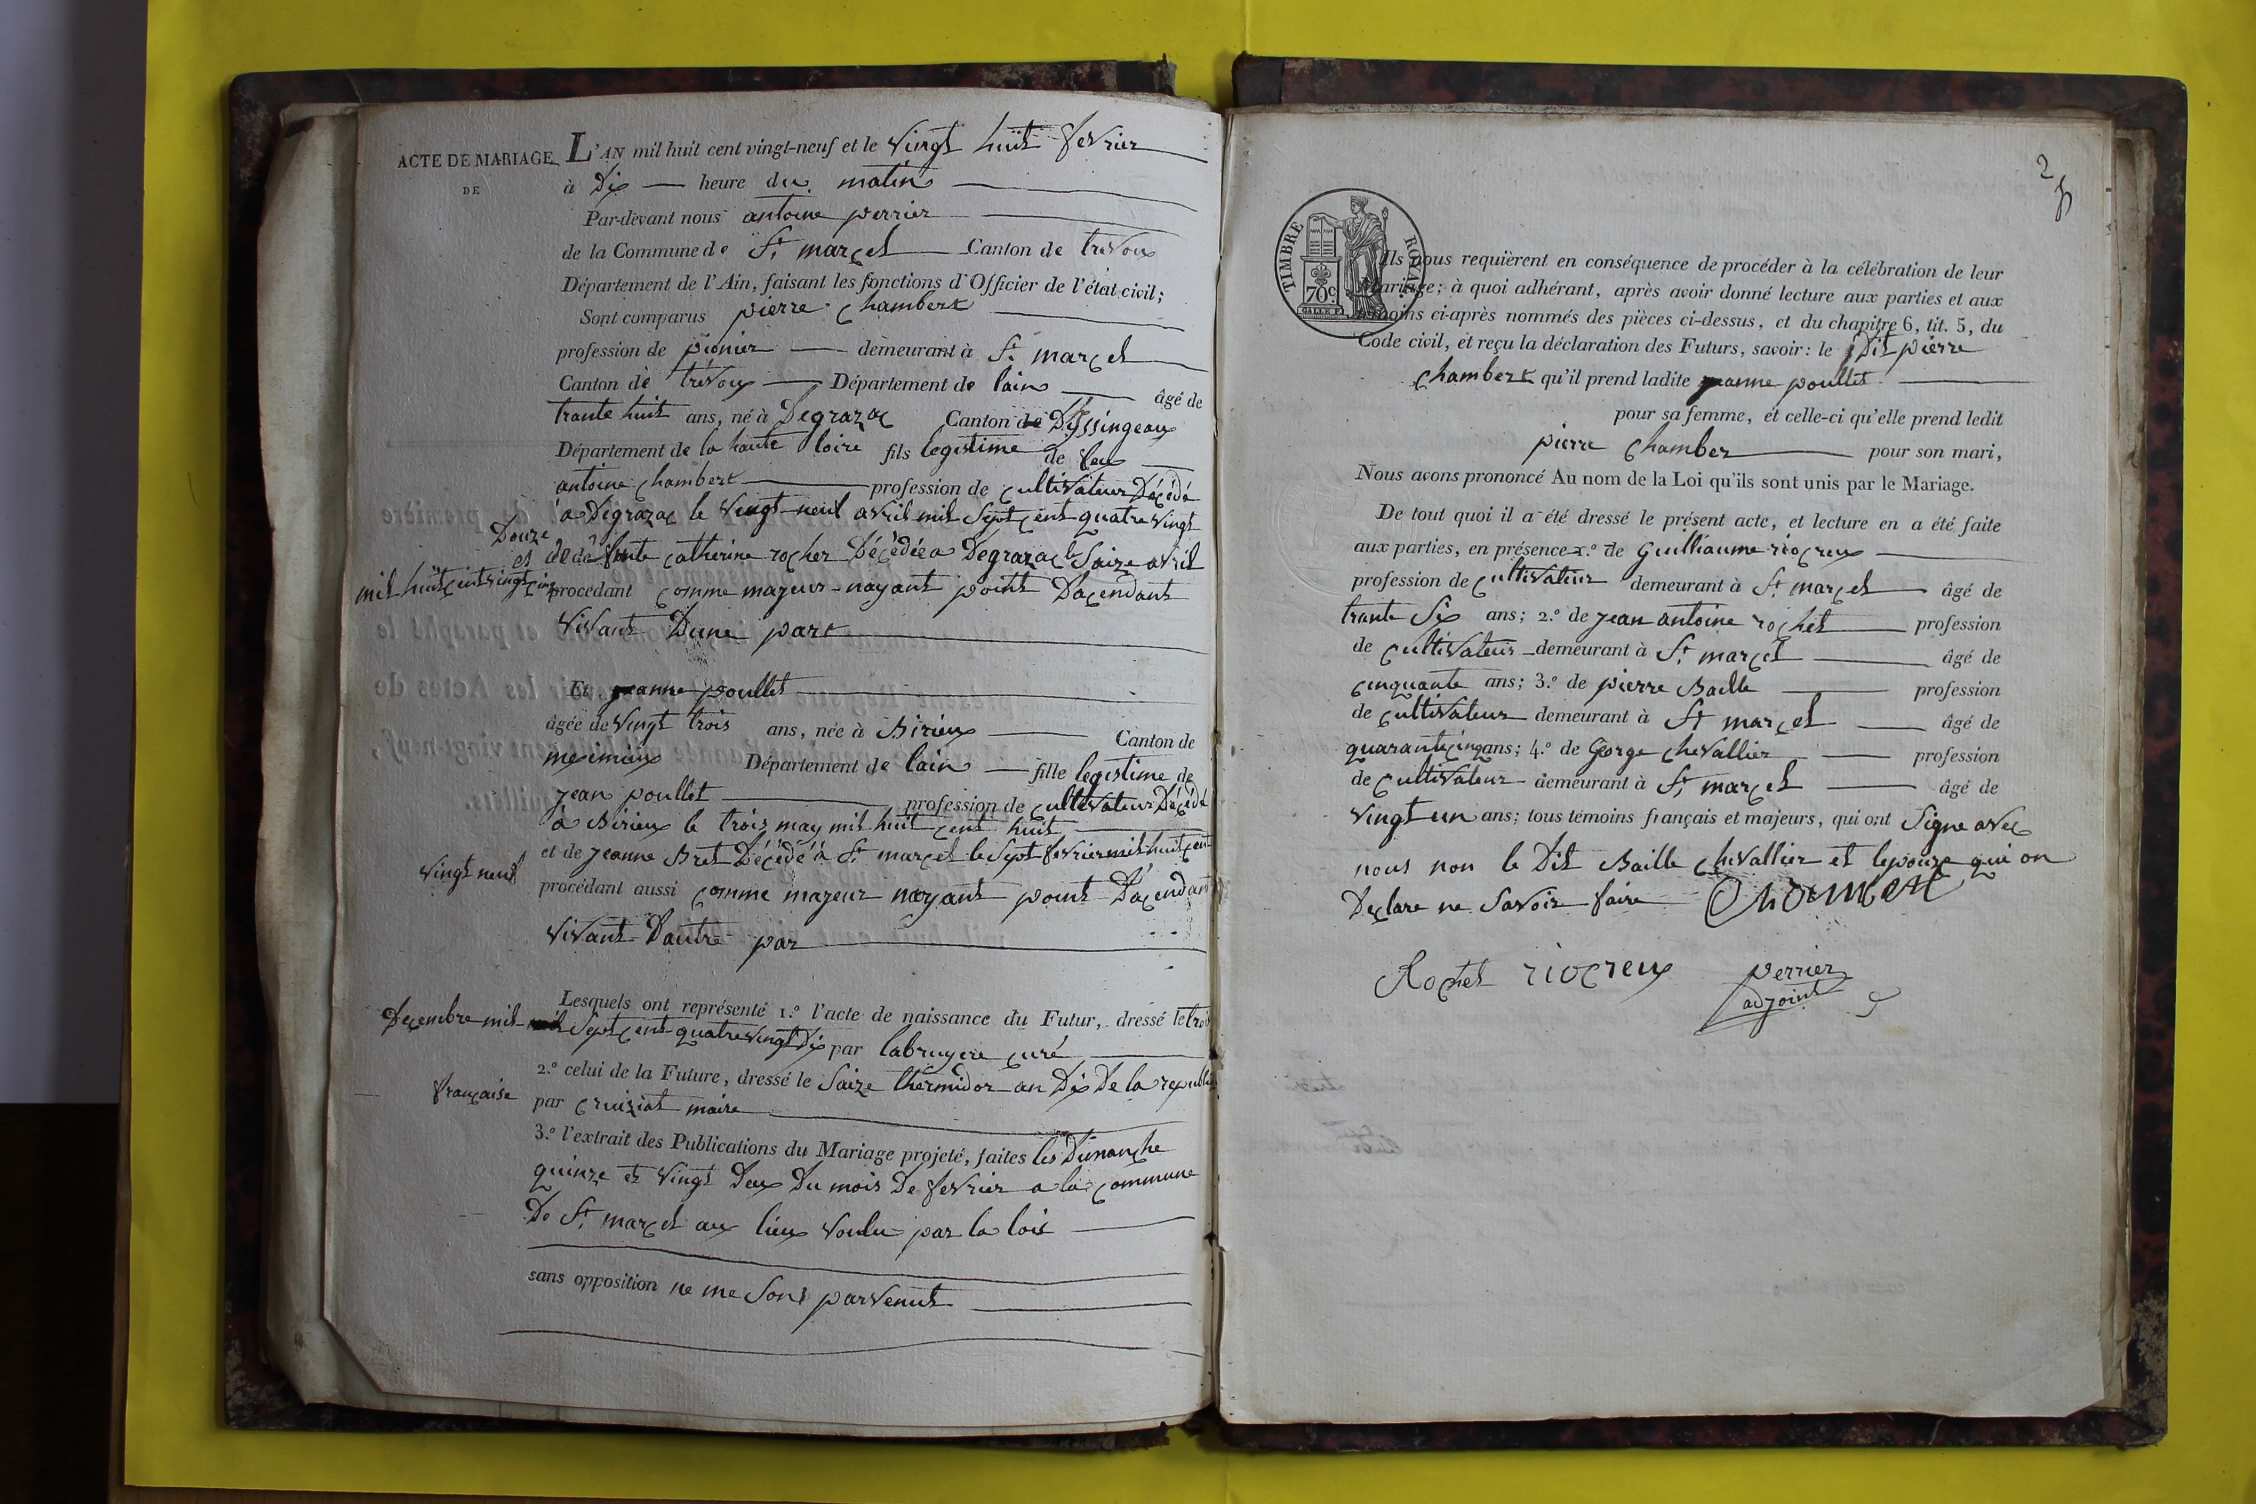 ACTE DE MARIAGE
DE
L'AN mil huit cent vingt-neuf et le vingt huit fevrier
à Dix heure du matin
Par-devant nous antoine perrier
de la Commune de St marcel Canton de trevoux
Département de l'Ain, faisant les fonctions d'Officier de l'état civil;
Sont comparus pierre Chambert
profession de pionier demeurant à St marcel
Canton de trévoux Département de lain âgé de
trante huit ans, né à Degrazac Canton de Dyssingeaux
Département de la haute loire fils legistime de feu
antoine Chambert profession de Cultivateur Décédé
a Degrazac le vingt neuf avril mil sept cent quatre vingt
Douze
et de défunte Catherine rocher Décédée a Degrazac le Saize avril
mil huit cent vingt cinq
procédant comme majeur nayant point Dacendant
vivant Dune part
Et jeanne poullet
âgée de vingt trois ans, née à Birieux Canton de
meximieux Département de lain fille legistime de
jean poullet profession de Cultivateur Décédé
à Birieux le trois may mil huit cent huit
et de jeanne Bret Décédé à St marcel le Sept fevrier mil huit cent
vingt neuf
procédant aussi comme majeur nayant point Dacendant
vivant Dautre par
Lesquels ont représenté 1.º l'acte de naissance du Futur, dressé le trois
Decembre mil Sept cent quatre vingt Dix par labruyere curé
2.º celui de la Future, dressé le Saize thermidor an Dix De la republi
française
par Cruiziat maire
3.º l'extrait des Publications du Mariage projeté, faites les Dimanche
quinze et vingt Deux Du mois De fevrier a la commune
De St marcel aux lieux voulu par la lois
sans opposition ne me sont parvenut
2
TIMBRE ROYAL
70c
Ils nous requièrent en conséquence de procéder à la célébration de leur
mariage; à quoi adhérant, après avoir donné lecture aux parties et aux
témoins ci-après nommés des pièces ci-dessus, et du chapitre 6, tit. 5, du
Code civil, et reçu la déclaration des Futurs, savoir: le Dit pierre
Chambert qu'il prend ladite jeanne poullet
pour sa femme, et celle-ci qu'elle prend ledit
pierre Chamber pour son mari,
Nous avons prononcé Au nom de la Loi qu'ils sont unis par le Mariage.
De tout quoi il a été dressé le présent acte, et lecture en a été faite
aux parties, en présence 1.º de Guilliaume riocreux
profession de Cultivateur demeurant à St marcel âgé de
trante Six ans; 2.º de jean antoine rochet profession
de Cultivateur demeurant à St marcel âgé de
cinquante ans; 3.º de pierre Baille profession
de Cultivateur demeurant à St marcel âgé de
quarante cinq ans; 4.º de George chevallier profession
de Cultivateur demeurant à St marcel âgé de
vingt un ans; tous témoins français et majeurs, qui ont Signe avec
nous non le Dit Baille Chevallier et lepouze qui on
Declare ne Savoir faire Chambert
Rochet riocreux perrier
adjoint